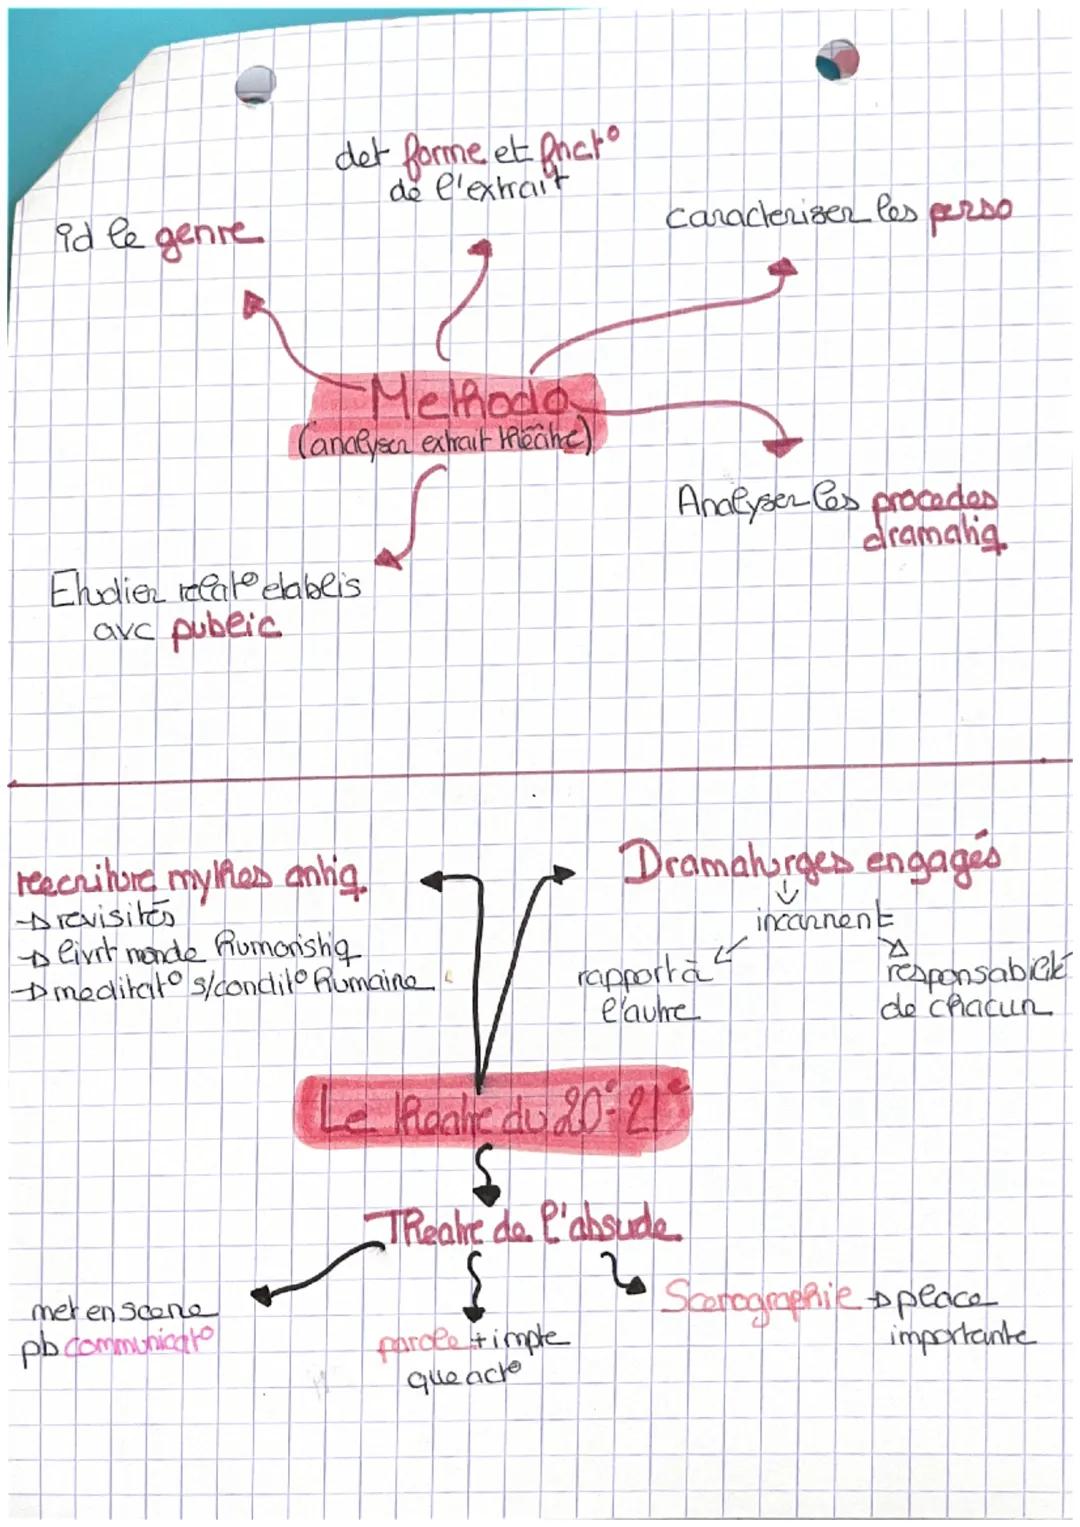 det forme et fnct°
de l'extrait
id le genre
caracteriser les perso
Methodo
(analyser extrait théâtre)
Analyser les procedes
dramatiq
Etudier relat° etablis
avc public
reecriture mythes antiq
→ revisités
→ livrt monde humoristiq
→ meditat° s/condit° humaine
Dramaturges engagés
incarnent
rapport à
l'autre
responsabilité
de chacun
Le theatre du 20e-21e
Theatre de l'absude
met en scene
pb communicat°
parole + impte
que act°
Scenographie → place
importante